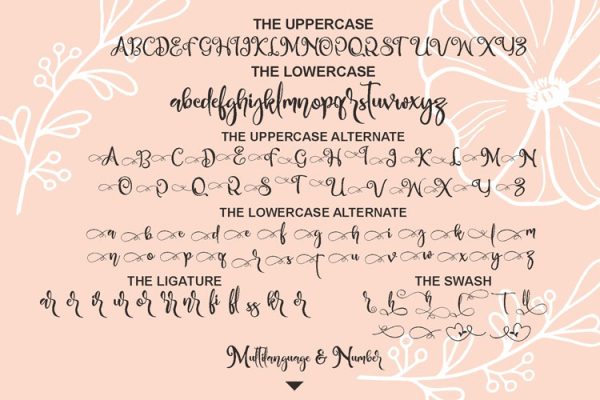 THE UPPERCASE
ABCDEFGHIJKLMNOPQRSTUVWXYZ
THE LOWERCASE
abcdefghijklmnopqrstuvwxyz
THE UPPERCASE ALTERNATE
A B C D E F G H I J K L M N
O P Q R S T U V W X Y Z
THE LOWERCASE ALTERNATE
a b c d e f g h i j k l m
n o p q r s t u v w x y z
THE LIGATURE
THE SWASH
ar er ir ur or rr nr fi fl ss kr
Multilanguage & Number